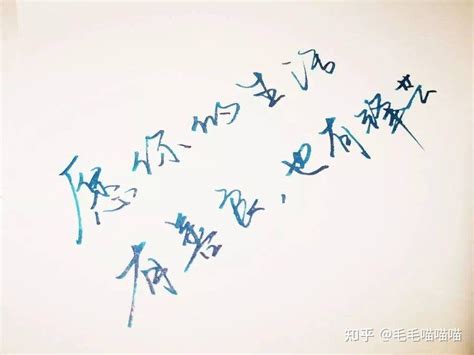 愿你的生活
有善良,也有锋芒
知乎 @毛毛喵喵喵